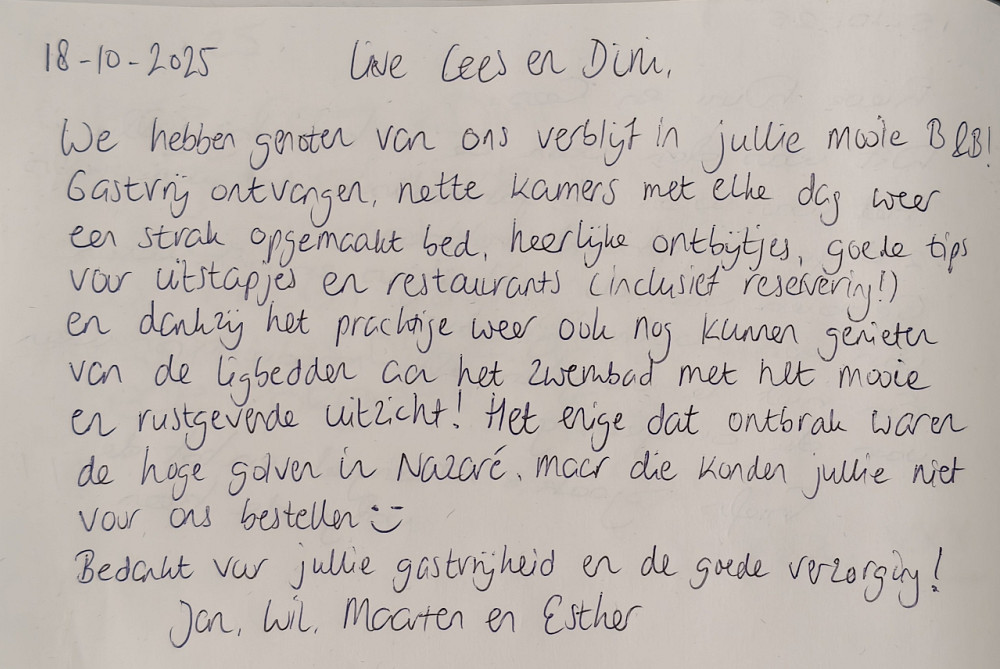 18-10-2025 Lieve Cees en Dini,
We hebben genoten van ons verblijf in jullie mooie B&B!
Gastvrij ontvangen, nette kamers met elke dag weer
een strak opgemaakt bed, heerlijke ontbijtjes, goede tips
voor uitstapjes en restaurants (inclusief reservering!)
en dankzij het prachtige weer ook nog kunnen genieten
van de ligbedden aan het zwembad met het mooie
en rustgevende uitzicht! Het enige dat ontbrak waren
de hoge golven in Nazaré, maar die konden jullie niet
voor ons bestellen :-)
Bedankt voor jullie gastvrijheid en de goede verzorging!
Jan, Wil, Maarten en Esther